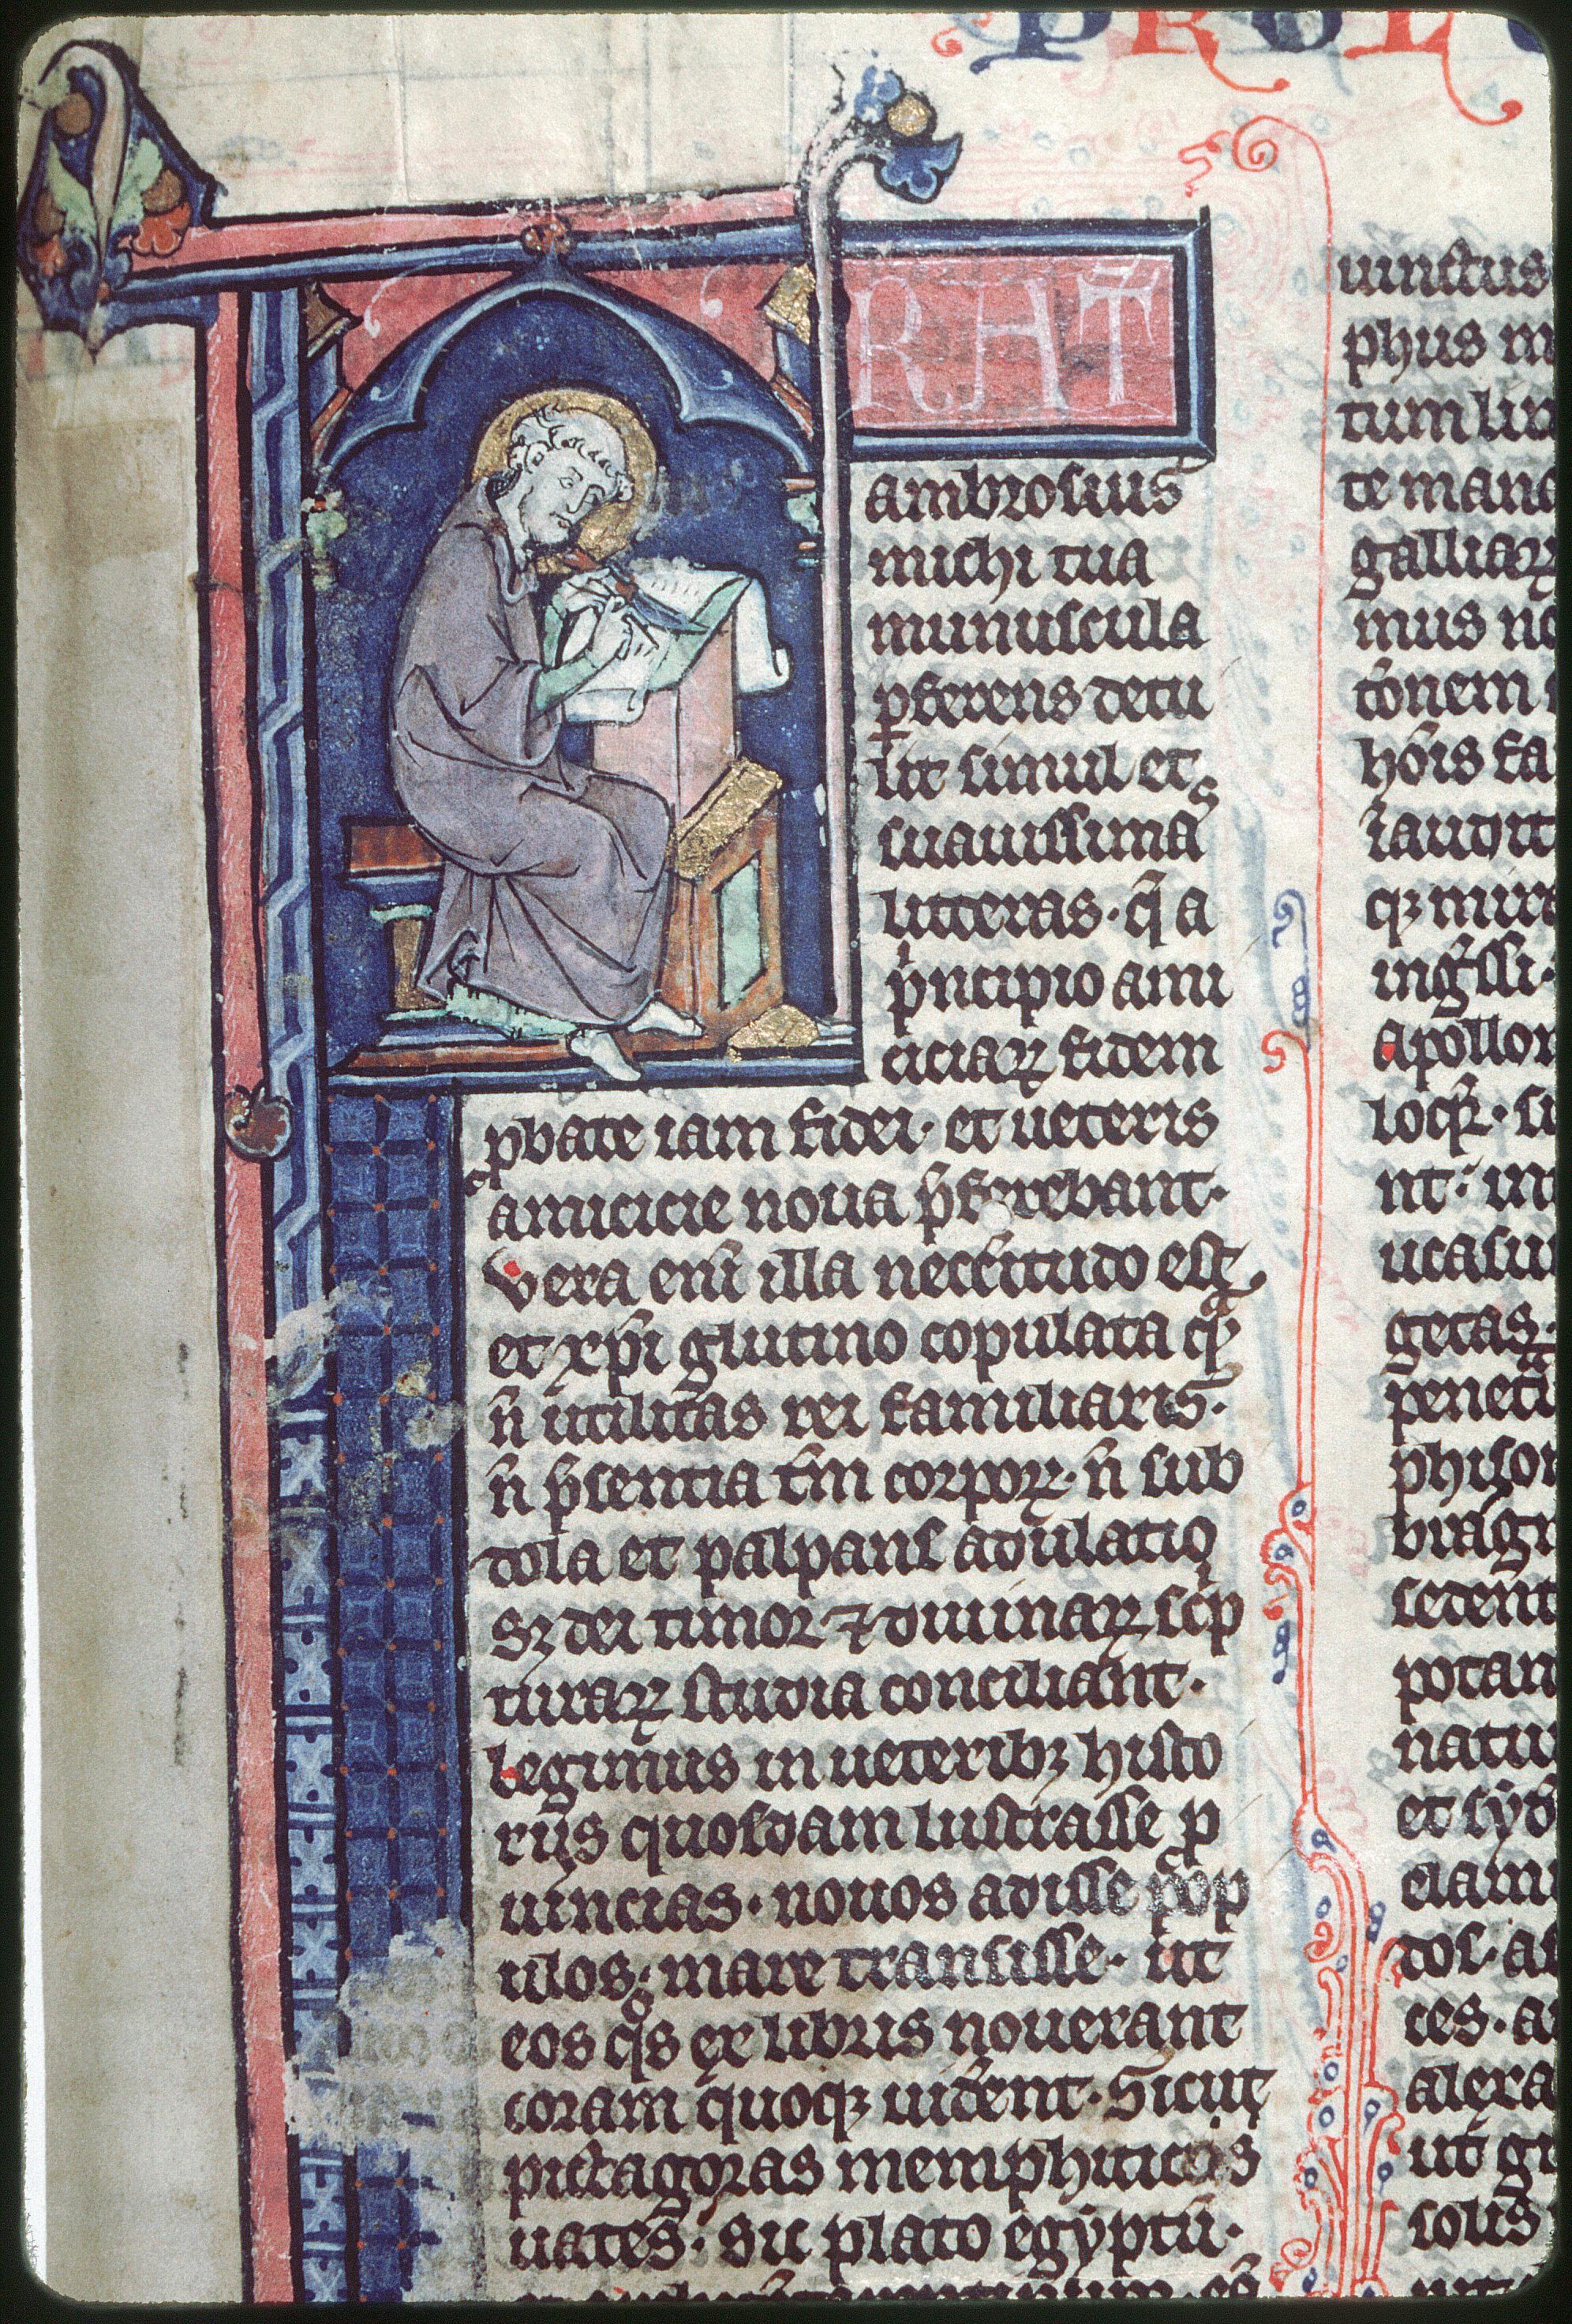 PROL
FRAT
ambrosius
michi tua
munuscula
ꝑferens detu
lit simul et
suauissimas
litteras· q̄ a
pͥncipio ami
ciciaꝝ fidem
ꝓbate iam fidei· et ueteris
amicicie noua p̄ferebant·
Vera enī illa necc̄itudo est
et xp̄i glutino copulata qͣ
n̄ utilitas rei familiaris·
n̄ p̄sentia tm̄ corpoꝝ· n̄ sub
dola et palpans adulatio
sꝫ dei timor ⁊ diuinaꝝ sc̄p
turaꝝ studia conciliant·
Legimus in ueteribꝫ histo
riis quosdam lustrasse ꝓ
uincias· nouos adisse pop
ulos· mare transisse· ut
eos qͦs ex libris nouerant
coram quoqꝫ uid̄ent· Sicut
pictagoras memphiticos
uates· Sic plato egyptū·
uinctus
phus m
tum liu
te mana
galliaꝝ
mus no
t̄onem
hōis fa
raudit
qꝫ mira
inḡssi·
Apollon
locꝫ· si
nt· in
ucasu
getas·
penet
phison
bragm
sedent
potan
natu
et syd
elami
dos· as
ces· a
alexa
ut g
solis